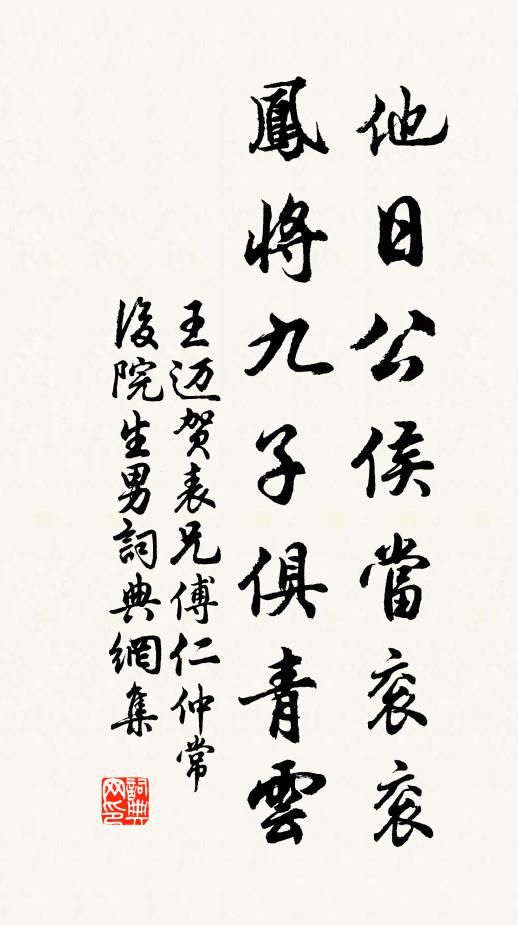 他日公侯當衮衮
鳳將九子俱青雲
王迈贺表兄傅仁仲常
後院生男詞典網集
詞典
网印